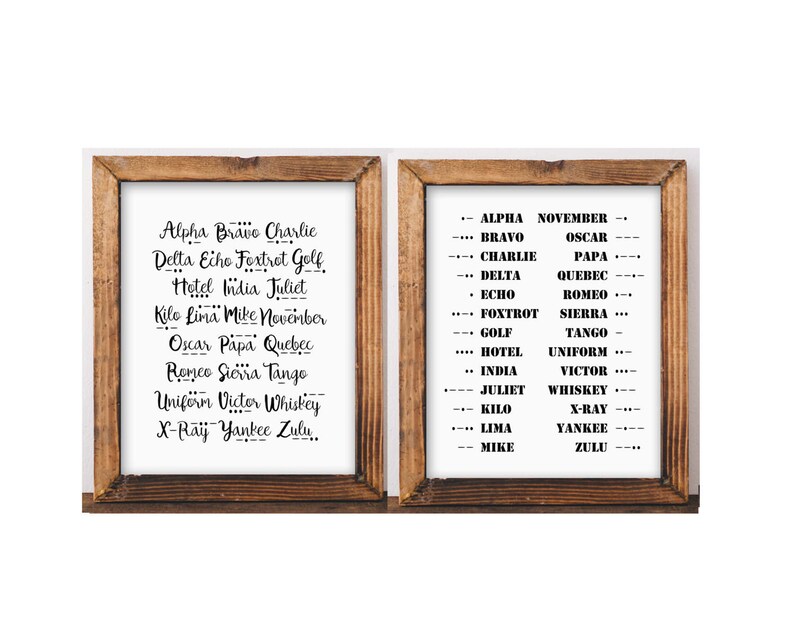 Alpha Bravo Charlie
Delta Echo Foxtrot Golf
Hotel India Juliet
Kilo Lima Mike November
Oscar Papa Quebec
Romeo Sierra Tango
Uniform Victor Whiskey
X-Ray Yankee Zulu
•– ALPHA NOVEMBER –•
–••• BRAVO OSCAR –––
–•–• CHARLIE PAPA •––•
–•• DELTA QUEBEC ––•–
• ECHO ROMEO •–•
••–• FOXTROT SIERRA •••
––• GOLF TANGO –
•••• HOTEL UNIFORM ••–
•• INDIA VICTOR •••–
•––– JULIET WHISKEY –•–
–•– KILO X-RAY –••–
•–•• LIMA YANKEE –•––
–– MIKE ZULU ––••